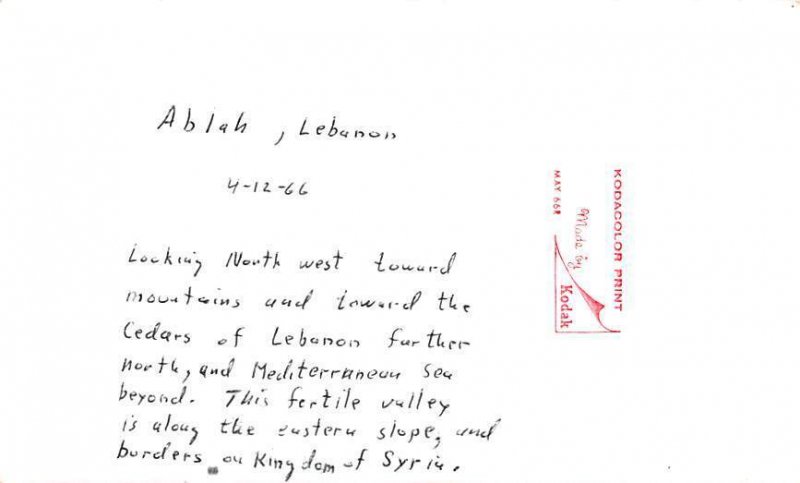 Ablah, Lebanon
4-12-66
Looking North west toward
mountains and toward the
Cedars of Lebanon further
north, and Mediterranean Sea
beyond. This fertile valley
is along the eastern slope, and
borders on Kingdom of Syria.
KODACOLOR PRINT
Made by
Kodak
MAY 66R